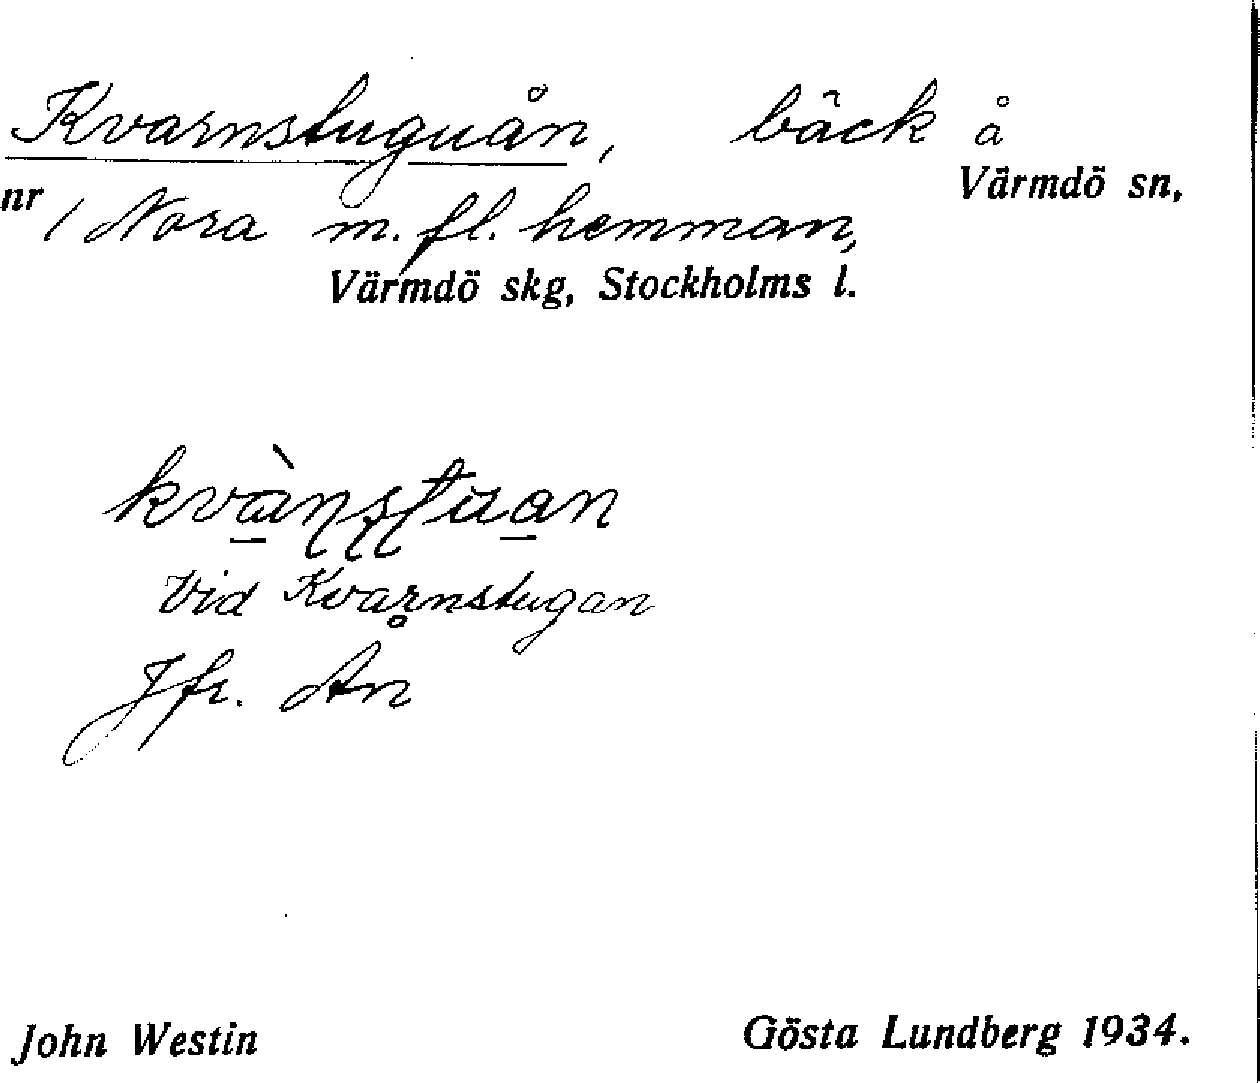 Kvarnstuguån, bäck å
Värmdö sn,
nr 1 Nora m. fl. hemman,
Värmdö skg, Stockholms l.
Vid Kvarnstugan
Jfr. Ån
John Westin Gösta Lundberg 1934.